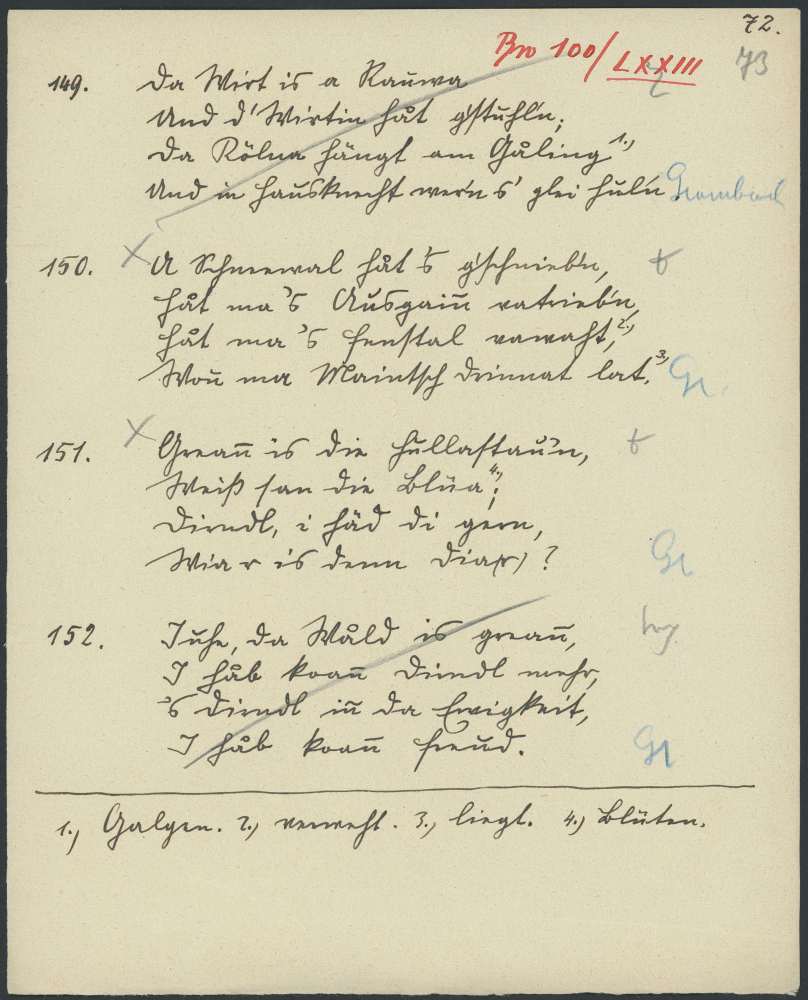 72.
Bro 100/LXXIII
73
149. Da Wirt is a Rauwa
Und d'Wirtin håt g'stuhl'n;
Da Kölna hängt am Gåling 1.)
Und in Hausknecht wer'n s' glei huln.
150. A Schneewal håt's g'schnieb'n,
Håt ma's Ausgaiñ vatrieb'n,
Håt ma's Fenstal vawaht, 2.)
Woñ ma Maintsch drinnat lat. 3.)
Gr
151. Greañ is die Hullastau'n,
Weiß san die Blüa 4.);
Dirndl, i häd di gern,
Wia r is denn dia(r)?
Gr
152. Juhe, da Wåld is greañ,
I håb koañ Dirndl mehr,
's Dirndl iñ da Ewigkeit,
I håb koañ Freud.
Gr
1.) Galgen. 2.) verweht. 3.) liegt. 4.) Blüten.